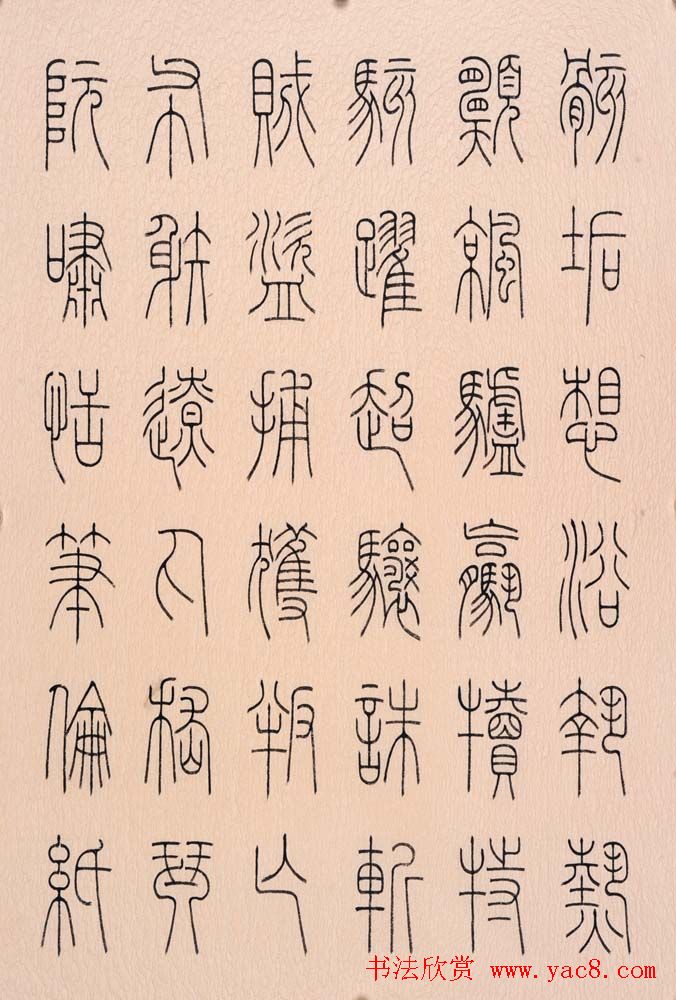 骸垢想浴執熱
願涼驢驘犢特
駭躍超驤誅斬
賊盜捕獲叛亡
布射遼丸嵇琴
阮嘯恬筆倫紙
书法欣赏 www.yac8.com